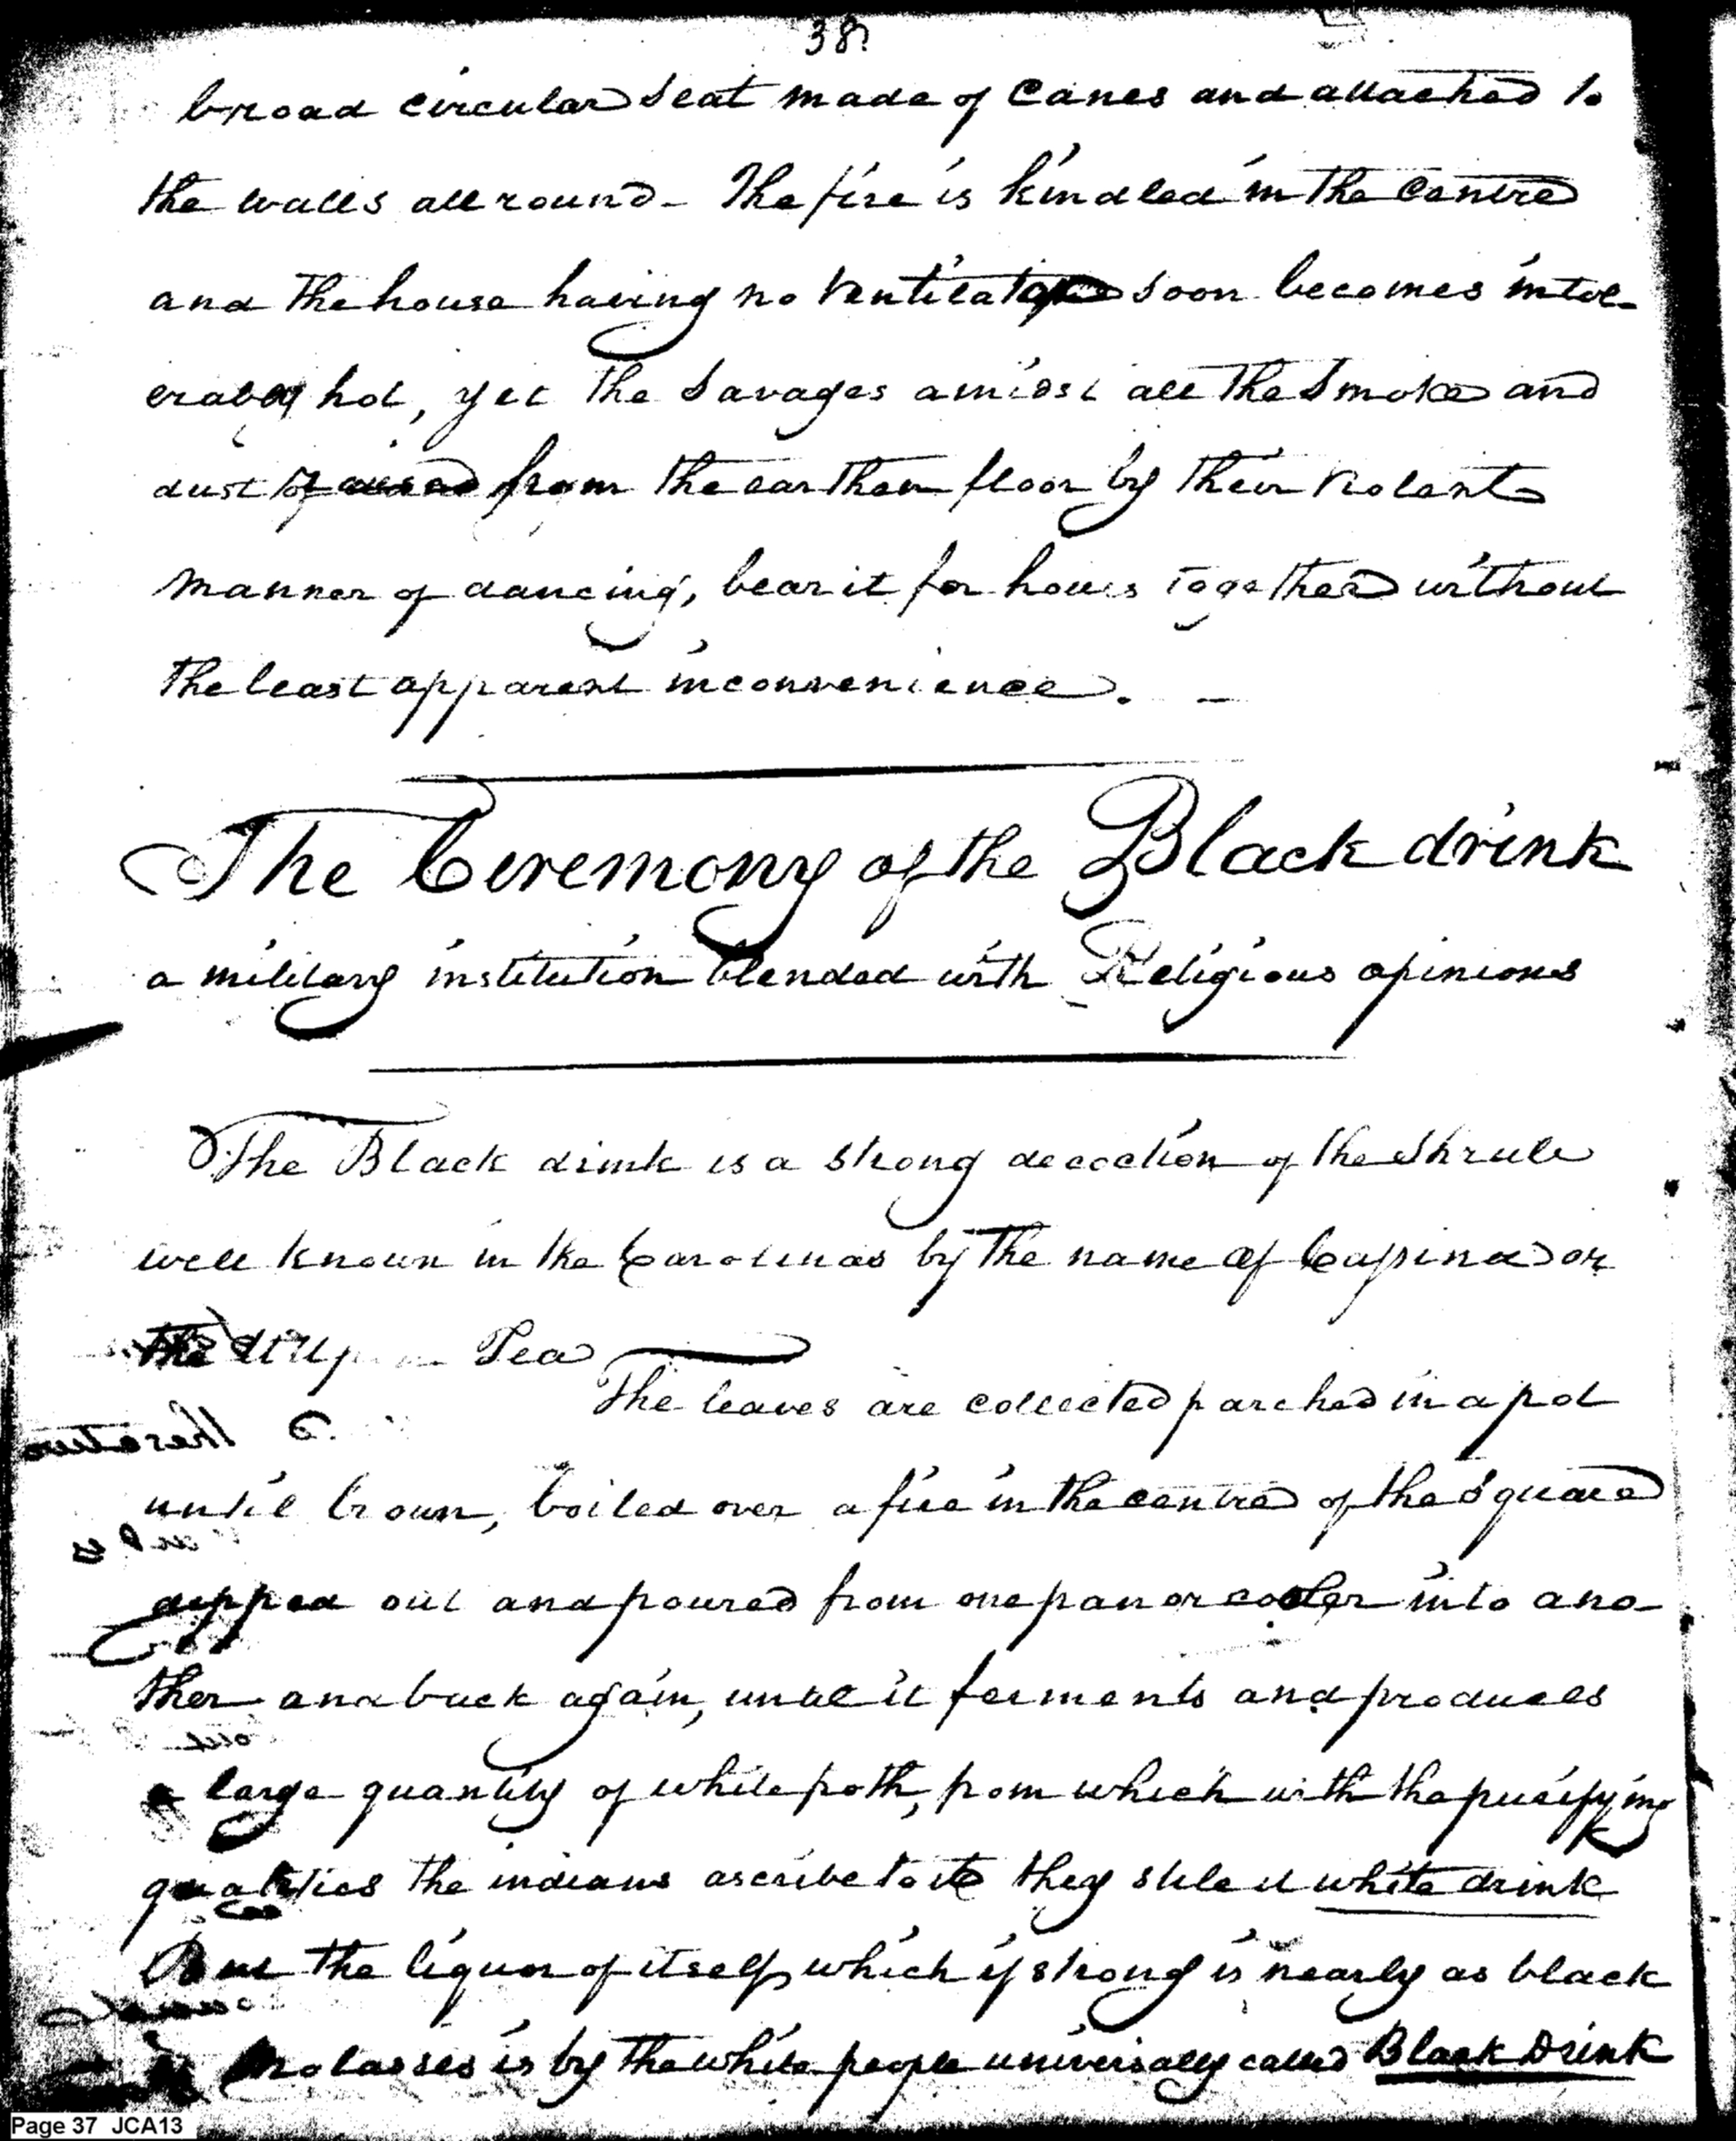 38
broad circular seat made of Canes and attached to
the walls all round - The fire is kindled in the centre
and the house having no Ventilator soon becomes intol-
erably hot, yet the Savages amidst all the Smoke and
dust from the earthen floor by their violent
manner of dancing, bear it for hours together without
the least apparent inconvenience. -
The Ceremony of the Black drink
a military institution blended with Religious opinions
The Black drink is a strong decoction of the Shrub
well known in the Carolinas by the name of Cassina or
the Tea
The leaves are collected parched in a pot
until brown, boiled over a fire in the centre of the Square
dipped out and poured from one pan or cooler into ano-
ther and back again, until it ferments and produces
a large quantity of white froth, from which with the purifying
qualities the indians ascribe to it they stile it white drink
But the liquor of itself which if strong is nearly as black
Molasses is by the white people universally called Black Drink
Page 37 JCA13